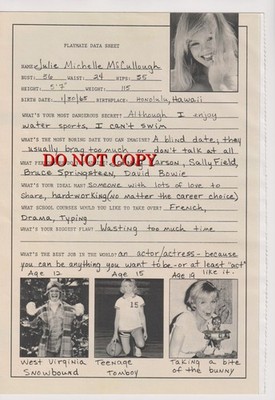 PLAYMATE DATA SHEET
NAME: Julie Michelle McCullough
BUST: 36 WAIST: 24 HIPS: 35
HEIGHT: 5'2" WEIGHT: 115
BIRTH DATE: 1/30/65 BIRTHPLACE: Honolulu, Hawaii
WHAT'S YOUR MOST DANGEROUS SECRET? Although I enjoy
water sports, I can't swim
WHAT'S THE MOST BORING DATE YOU CAN IMAGINE? A blind date; they
usually brag too much or don't talk at all
DO NOT COPY
WHAT Carson, Sally Field,
Bruce Springsteen, David Bowie
WHAT'S YOUR IDEAL MAN? Someone with lots of love to
share, hard-working (no matter the career choice)
WHAT SCHOOL COURSES WOULD YOU LIKE TO TAKE OVER? French,
Drama, Typing
WHAT'S YOUR BIGGEST FLAW? Wasting too much time
WHAT'S THE BEST JOB IN THE WORLD? an actor/actress- because
you can be anything you want to be - or at least "act"
like it.
Age 12 Age 15 Age 19
15
West Virginia Snowbound
Teenage Tomboy
Taking a bite of the bunny